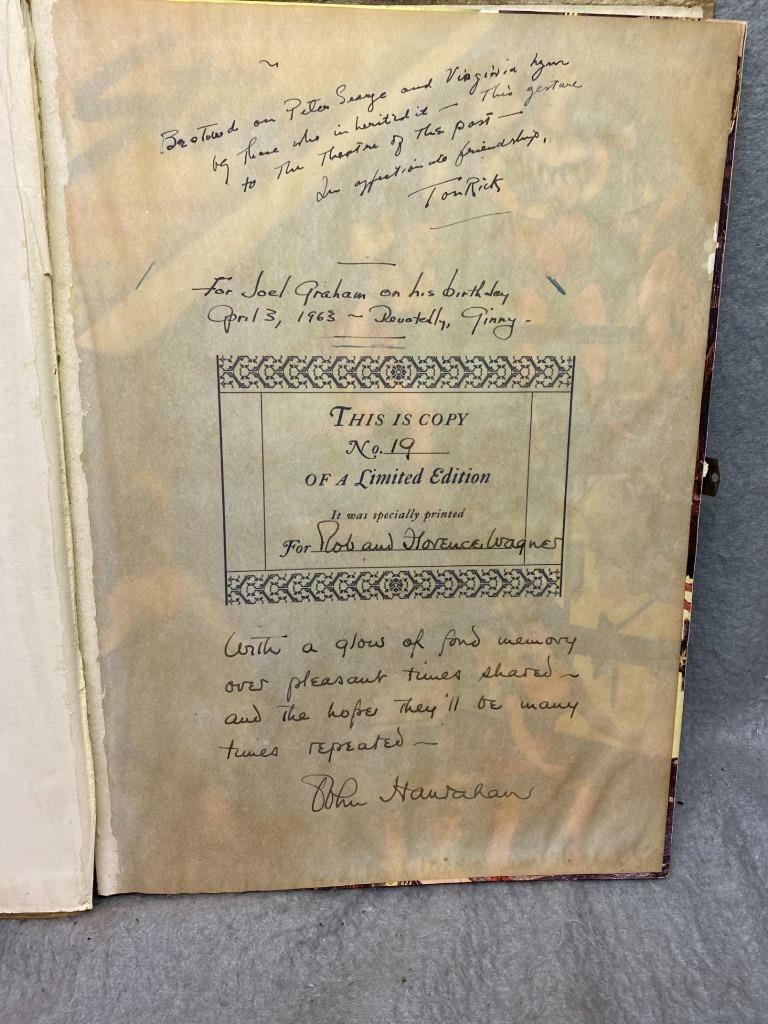 Bestowed on Peter George and Virginia
by those who inherited it — This gesture
to the Theatre of the past —
In affectionate friendship,
For Joel Graham on his birthday
April 3, 1963 ~ Devotedly, Ginny -
THIS IS COPY
No. 19
OF A Limited Edition
It was specially printed
For Rob and Florence Wagner
With a glow of fond memory
over pleasant times shared ~
and the hopes they'll be many
times repeated ~
John Hanrahan